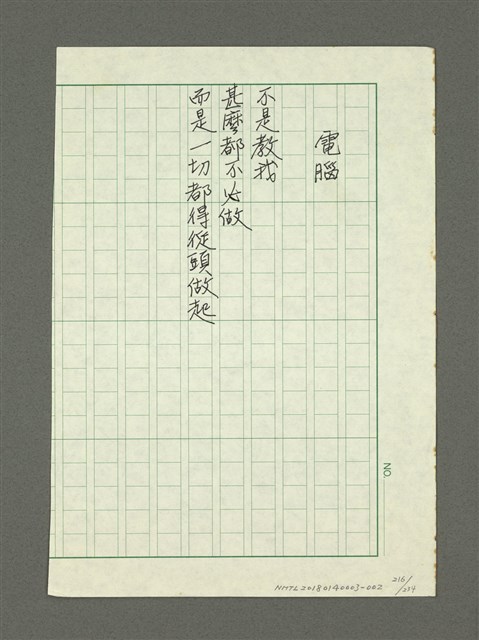 電腦
不是教我
甚麼都不必做
而是一切都得從頭做起
NO.
NMTL20180140003-002
216/234